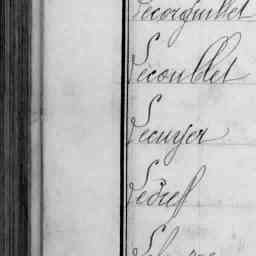 Lecorguillet
Lecoublet
Lecuyer
Ledreff